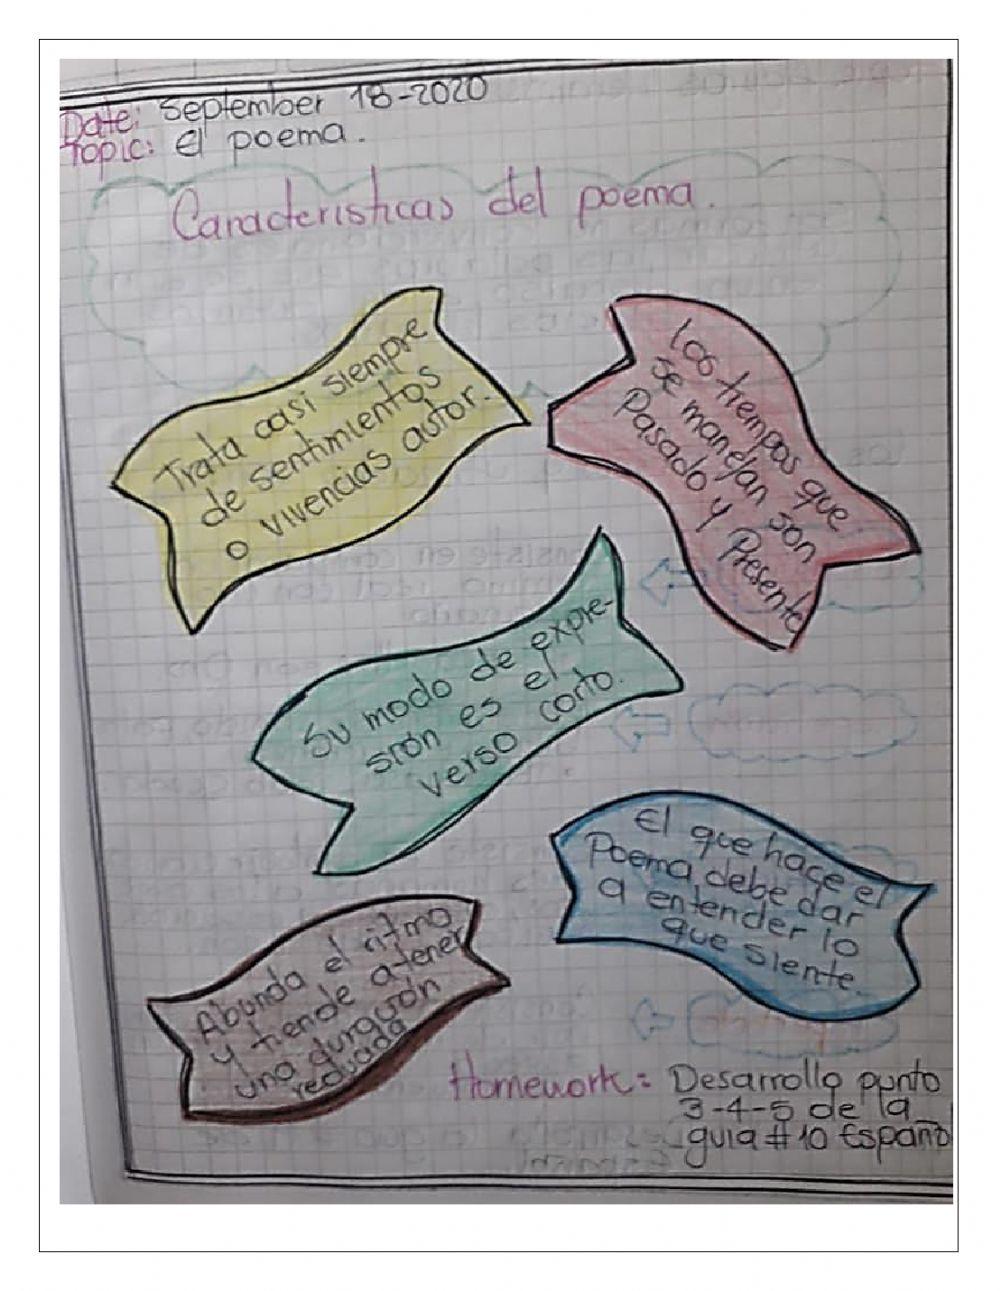 Date: September 18-2020
Topic: el poema.
Caracteristicas del poema.
Trata casi siempre
de sentimientos
o vivencias autor.
Los tiempos que
se manejan son
Pasado y Presente
Su modo de expre-
sión es el
verso corto.
El que hace el
Poema debe dar
a entender lo
que siente.
Abunda el ritmo
y tiende a tener
una
Homework: Desarrollo punto
3-4-5 de la
guia #10 Español